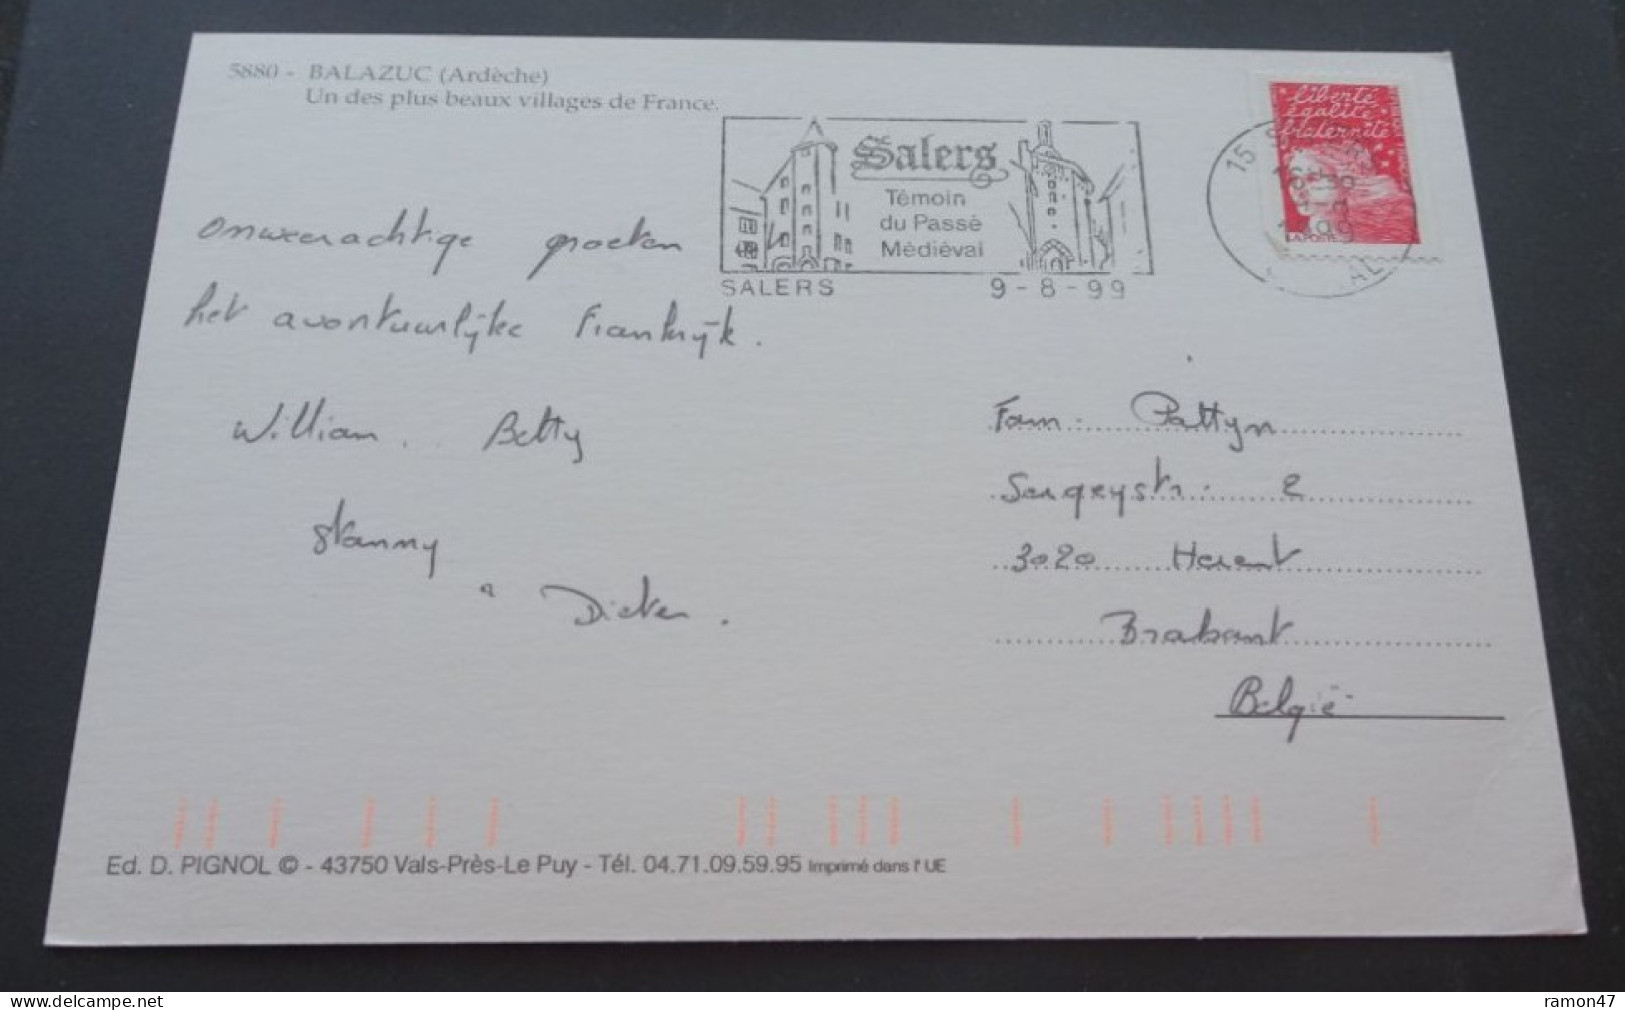 5880 - BALAZUC (Ardèche)
Un des plus beaux villages de France.
Salers
Témoin
du Passé
Médiéval
SALERS 9-8-99
liberté
égalité
fraternité
LA POSTE
15
1999
onweerachtige groeten
het avontuurlijke Frankrijk.
William. Betty
Stanny
Dieter.
Fam. Pattyn
2
3020 Herent
Brabant
België
Ed. D. PIGNOL © - 43750 Vals-Près-Le Puy - Tél. 04.71.09.59.95 Imprimé dans l'UE
https://www.delcampe.net
ramon47